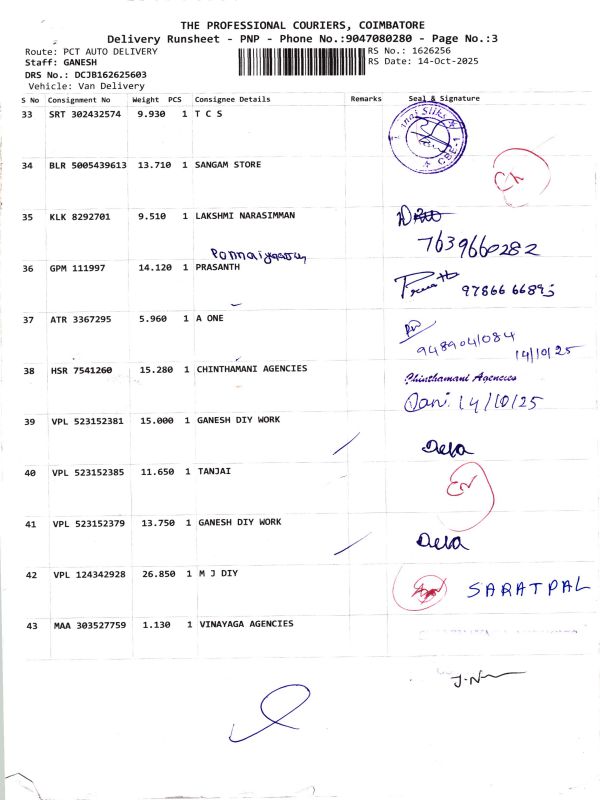 THE PROFESSIONAL COURIERS, COIMBATORE
Delivery Runsheet - PNP - Phone No.:9047080280 - Page No.:3
Route: PCT AUTO DELIVERY
RS No.: 1626256
Staff: GANESH
RS Date: 14-Oct-2025
DRS No.: DCJB162625603
Vehicle: Van Delivery
S No Consignment No Weight PCS Consignee Details Remarks Seal & Signature
33 SRT 302432574 9.930 1 T C S
CBE-1
34 BLR 5005439613 13.710 1 SANGAM STORE
35 KLK 8292701 9.510 1 LAKSHMI NARASIMMAN
7639660282
36 GPM 111997 14.120 1 PRASANTH
97866 66895
37 ATR 3367295 5.960 1 A ONE
9489041084
14/10/25
38 HSR 7541260 15.280 1 CHINTHAMANI AGENCIES
Chinthamani Agencies
Dani 14/10/25
39 VPL 523152381 15.000 1 GANESH DIY WORK
40 VPL 523152385 11.650 1 TANJAI
41 VPL 523152379 13.750 1 GANESH DIY WORK
42 VPL 124342928 26.850 1 M J DIY
SARATPAL
43 MAA 303527759 1.130 1 VINAYAGA AGENCIES